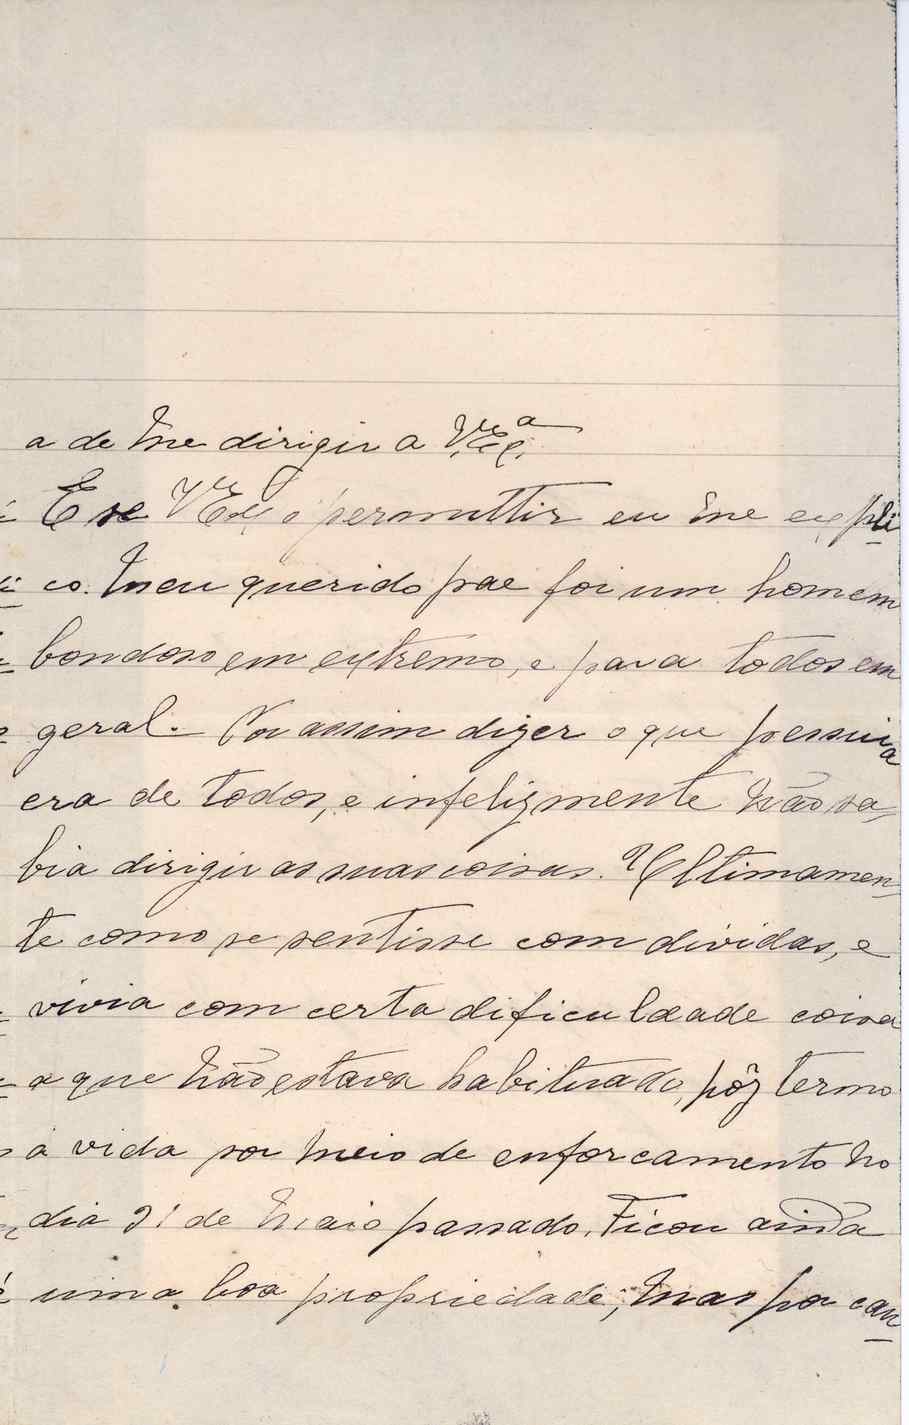 a de me dirigir a V.Exª.
E se VEx o permittir eu me expli
co. Meu querido pae foi um homem
bondoso em extremo, e para todos em
geral. Por assim dizer o que possuia
era de todos, e infelizmente não sa-
bia dirigir as suas coisas. Ultimamen-
te como se sentisse com dividas, e
vivia com certa dificuldade coisa
a que não estava habituado, pôz termo
á vida por meio de enforcamento no
dia 21 de Maio passado. Ficou ainda
uma boa propriedade; mas por cau